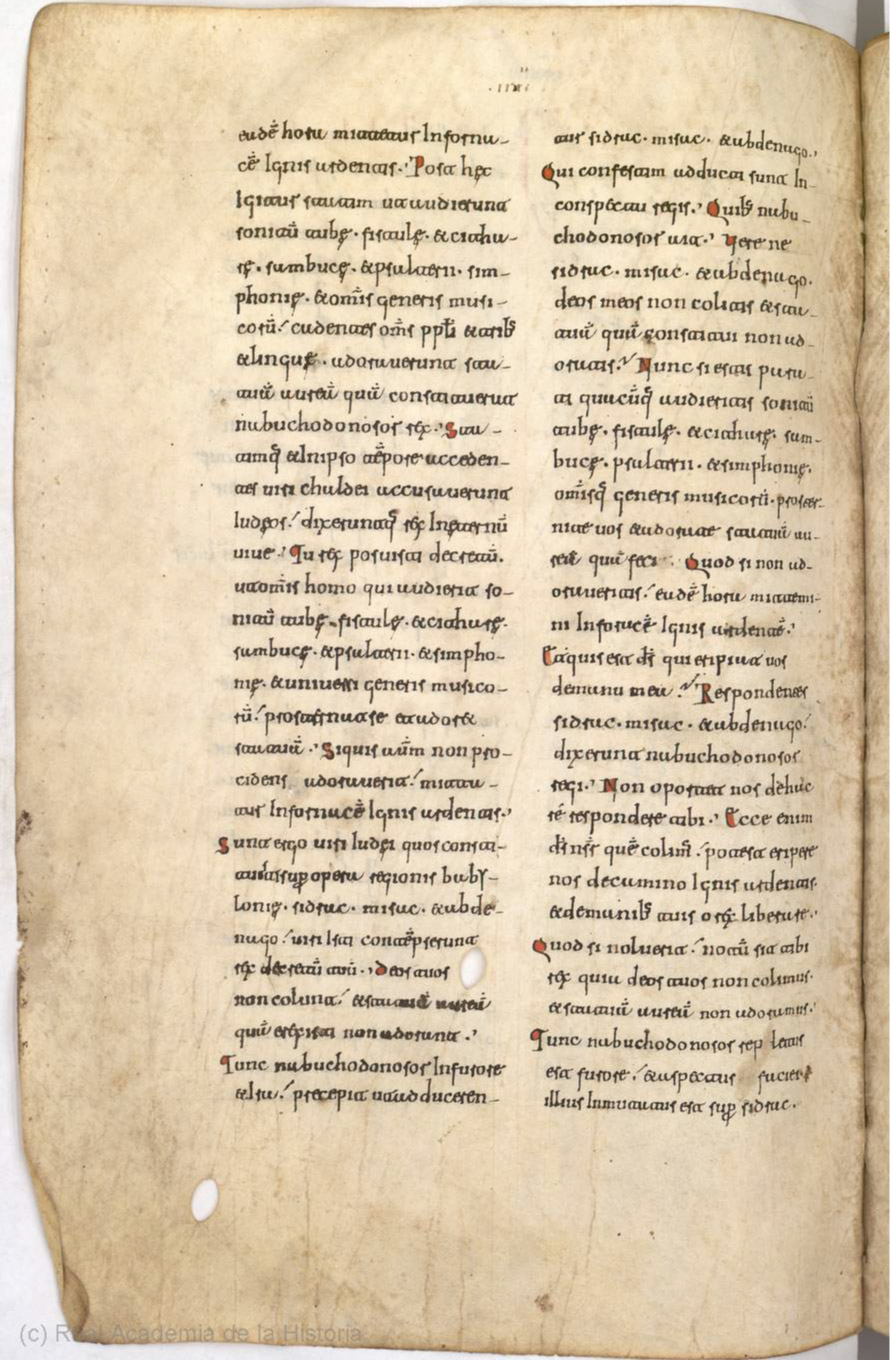 .IIII.
eadē hora mittetur Inforna-
cē Ignis ardentis. Posthęc
Igitur statim utaudierunt
sonitū tubę. fistulę. &citha-
rę. sambucę. &psalterii. sim-
phonię. &om̄is generis musi-
corū. cadentes om̄s ppl̄i &tribꝰ
&linguę. adorauerunt sta-
tuā aureā quā constituerat
nabuchodonosor rex. Sta-
timq̄ &Inipso tēpore acceden-
tes uiri chaldei accusauerunt
Iudęos. dixeruntq̄ regi Inęternū
uiue. Tu rex posuisti decretū.
utom̄is homo qui audierit so-
nitū tubę. fistulę. &citharę.
sambucę. &psalterii. &simpho-
nię. &uniuersi generis musico-
rū. prosternatse &ador&
statuā. Siquis aūm non pro-
cidens adorauerit. mitta-
tur Infornacē Ignis ardentis.
Sunt ergo uiri Iudęi quos consti-
tuisti suꝑ opera regionis baby-
lonię. sidrac. misac. &abde-
nago. uiri Isti contēpserunt
rex decretū tuū. Deos tuos
non colunt. &statuā aureā
quā erexisti non adorant.
Tunc nabuchodonosor Infurore
&Ira. precepit utadduceren-
tur sidrac. misac. &abdenago.
Qui confestim adducti sunt In-
conspectu regis. Quibꝰ nabu-
chodonosor ait. Uere ne
sidrac. misac. &abdenago.
deos meos non colitis &sta-
tuā quā constitui non ad-
oratis. Nunc si estis para-
ti quacūq̄ audieritis sonitū
tubę. fistulę. &citharę. sam-
bucę. psalterii. &simphonię.
om̄isq̄ generis musicorū. proster-
nite uos &adorate statuā au-
reā quā feci. Quod si non ad-
oraueritis. eadē hora mittemi-
ni Infornacē Ignis ardentē.
Etquis est d̄s qui eripiat uos
demanu mea. Respondentes
sidrac. misac. &abdenago.
dixerunt nabuchodonosor
regi. Non oportet nos dehac
rē respondere tibi. Ecce enim
d̄s nr̄ quē colim̄. potest eripere
nos decamino Ignis ardentis.
&demanibꝰ tuis o rex liberare.
Quod si noluerit. notū sit tibi
rex quia deos tuos non colimus.
&statuā aureā non adoramus.
Tunc nabuchodonosor repletus
est furore. &aspectus faciei
illius Inmutatus est suꝑ sidrac.
(c) Real Academia de la Historia